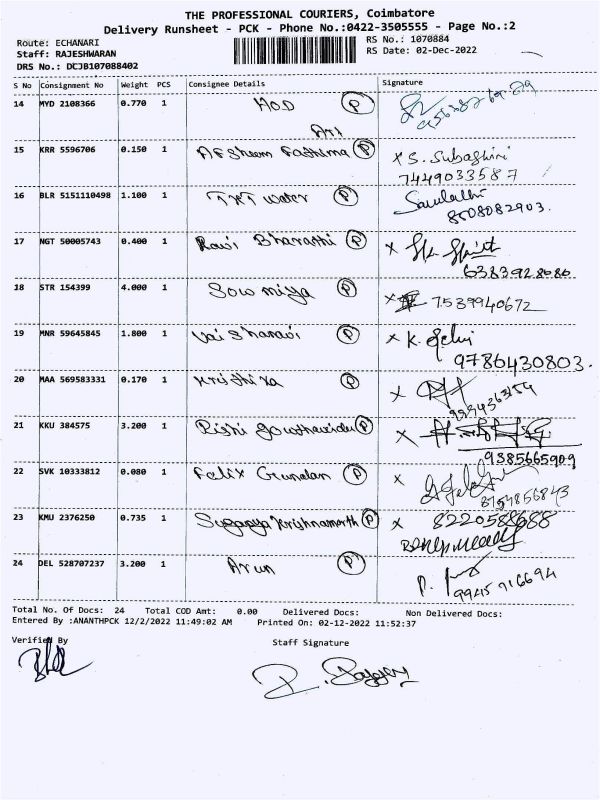 THE PROFESSIONAL COURIERS, Coimbatore
Delivery Runsheet - PCK - Phone No.:0422-3505555 - Page No.:2
Route: ECHANARI RS No.: 1070884
Staff: RAJESHWARAN RS Date: 02-Dec-2022
DRS No.: DCJB107088402
S No Consignment No Weight PCS Consignee Details Signature
14 MYD 2108366 0.770 1 HOD P
Ari
15 KRR 5596706 0.150 1 Afsheem Fathima P x S. Subashini
7449033587
16 BLR 5151110498 1.100 1 TXT water P
8508082903.
17 NGT 50005743 0.400 1 Ravi Bharathi P x
6383928686
18 STR 154399 4.000 1 Sowmiya P x 7539940672
19 MNR 59645845 1.800 1 Vaishanavi P x K. Selvi
9786430803.
20 MAA 569583331 0.170 1 Krithika P x
21 KKU 384575 3.200 1 Rishi P x
9385665909
22 SVK 10333812 0.080 1 Felix P x
8754856843
23 KMU 2376250 0.735 1 P x 8220588688
24 DEL 528707237 3.200 1 Arun P P.
9945916694
Total No. Of Docs: 24 Total COD Amt: 0.00 Delivered Docs: Non Delivered Docs:
Entered By :ANANTHPCK 12/2/2022 11:49:02 AM Printed On: 02-12-2022 11:52:37
Verified By Staff Signature